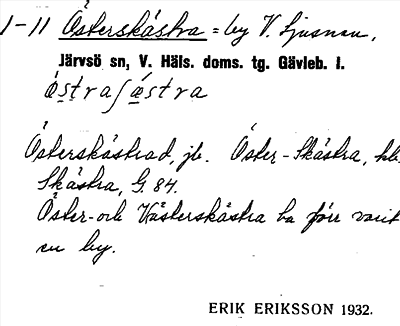 1-11 Österskästra = by V. Ljusnan,
Järvsö sn, V. Häls. doms. tg. Gävleb. l.
ǿstraſǽstra
Österskästrad, jb. Öster-Skästra, hls.
Skästra, G. 84.
Öster- och Västerskästra ha förr varit
en by.
ERIK ERIKSSON 1932.